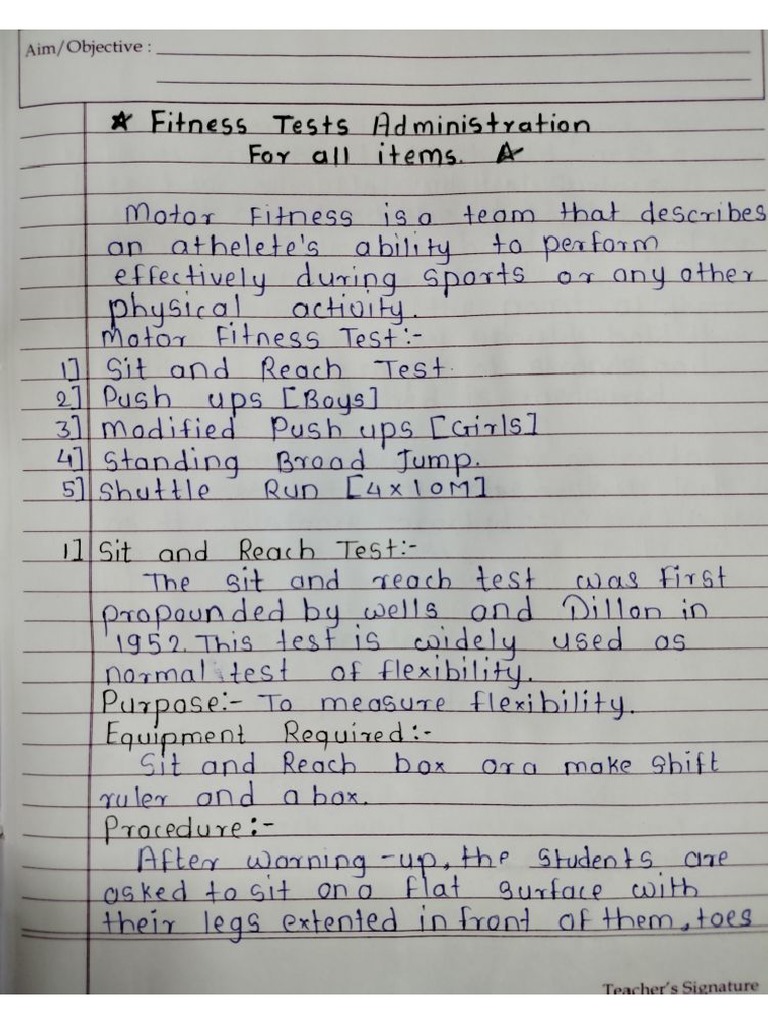 Aim/Objective :
☆ Fitness Tests Administration
For all items. ☆
Motor Fitness is a team that describes
an athelete's ability to perform
effectively during sports or any other
physical activity.
Motor Fitness Test:-
1] Sit and Reach Test.
2] Push ups [Boys]
3] Modified Push ups [Girls]
4] Standing Broad Jump.
5] Shuttle Run [4x10M]
1] Sit and Reach Test:-
The sit and reach test was first
propounded by wells and Dillon in
1952. This test is widely used as
normal test of flexibility.
Purpose:- To measure flexibility.
Equipment Required:-
Sit and Reach box or a make shift
ruler and a box.
Procedure:-
After worning-up, the students are
asked to sit on a flat surface with
their legs extented in front of them, toes
Teacher's Signature